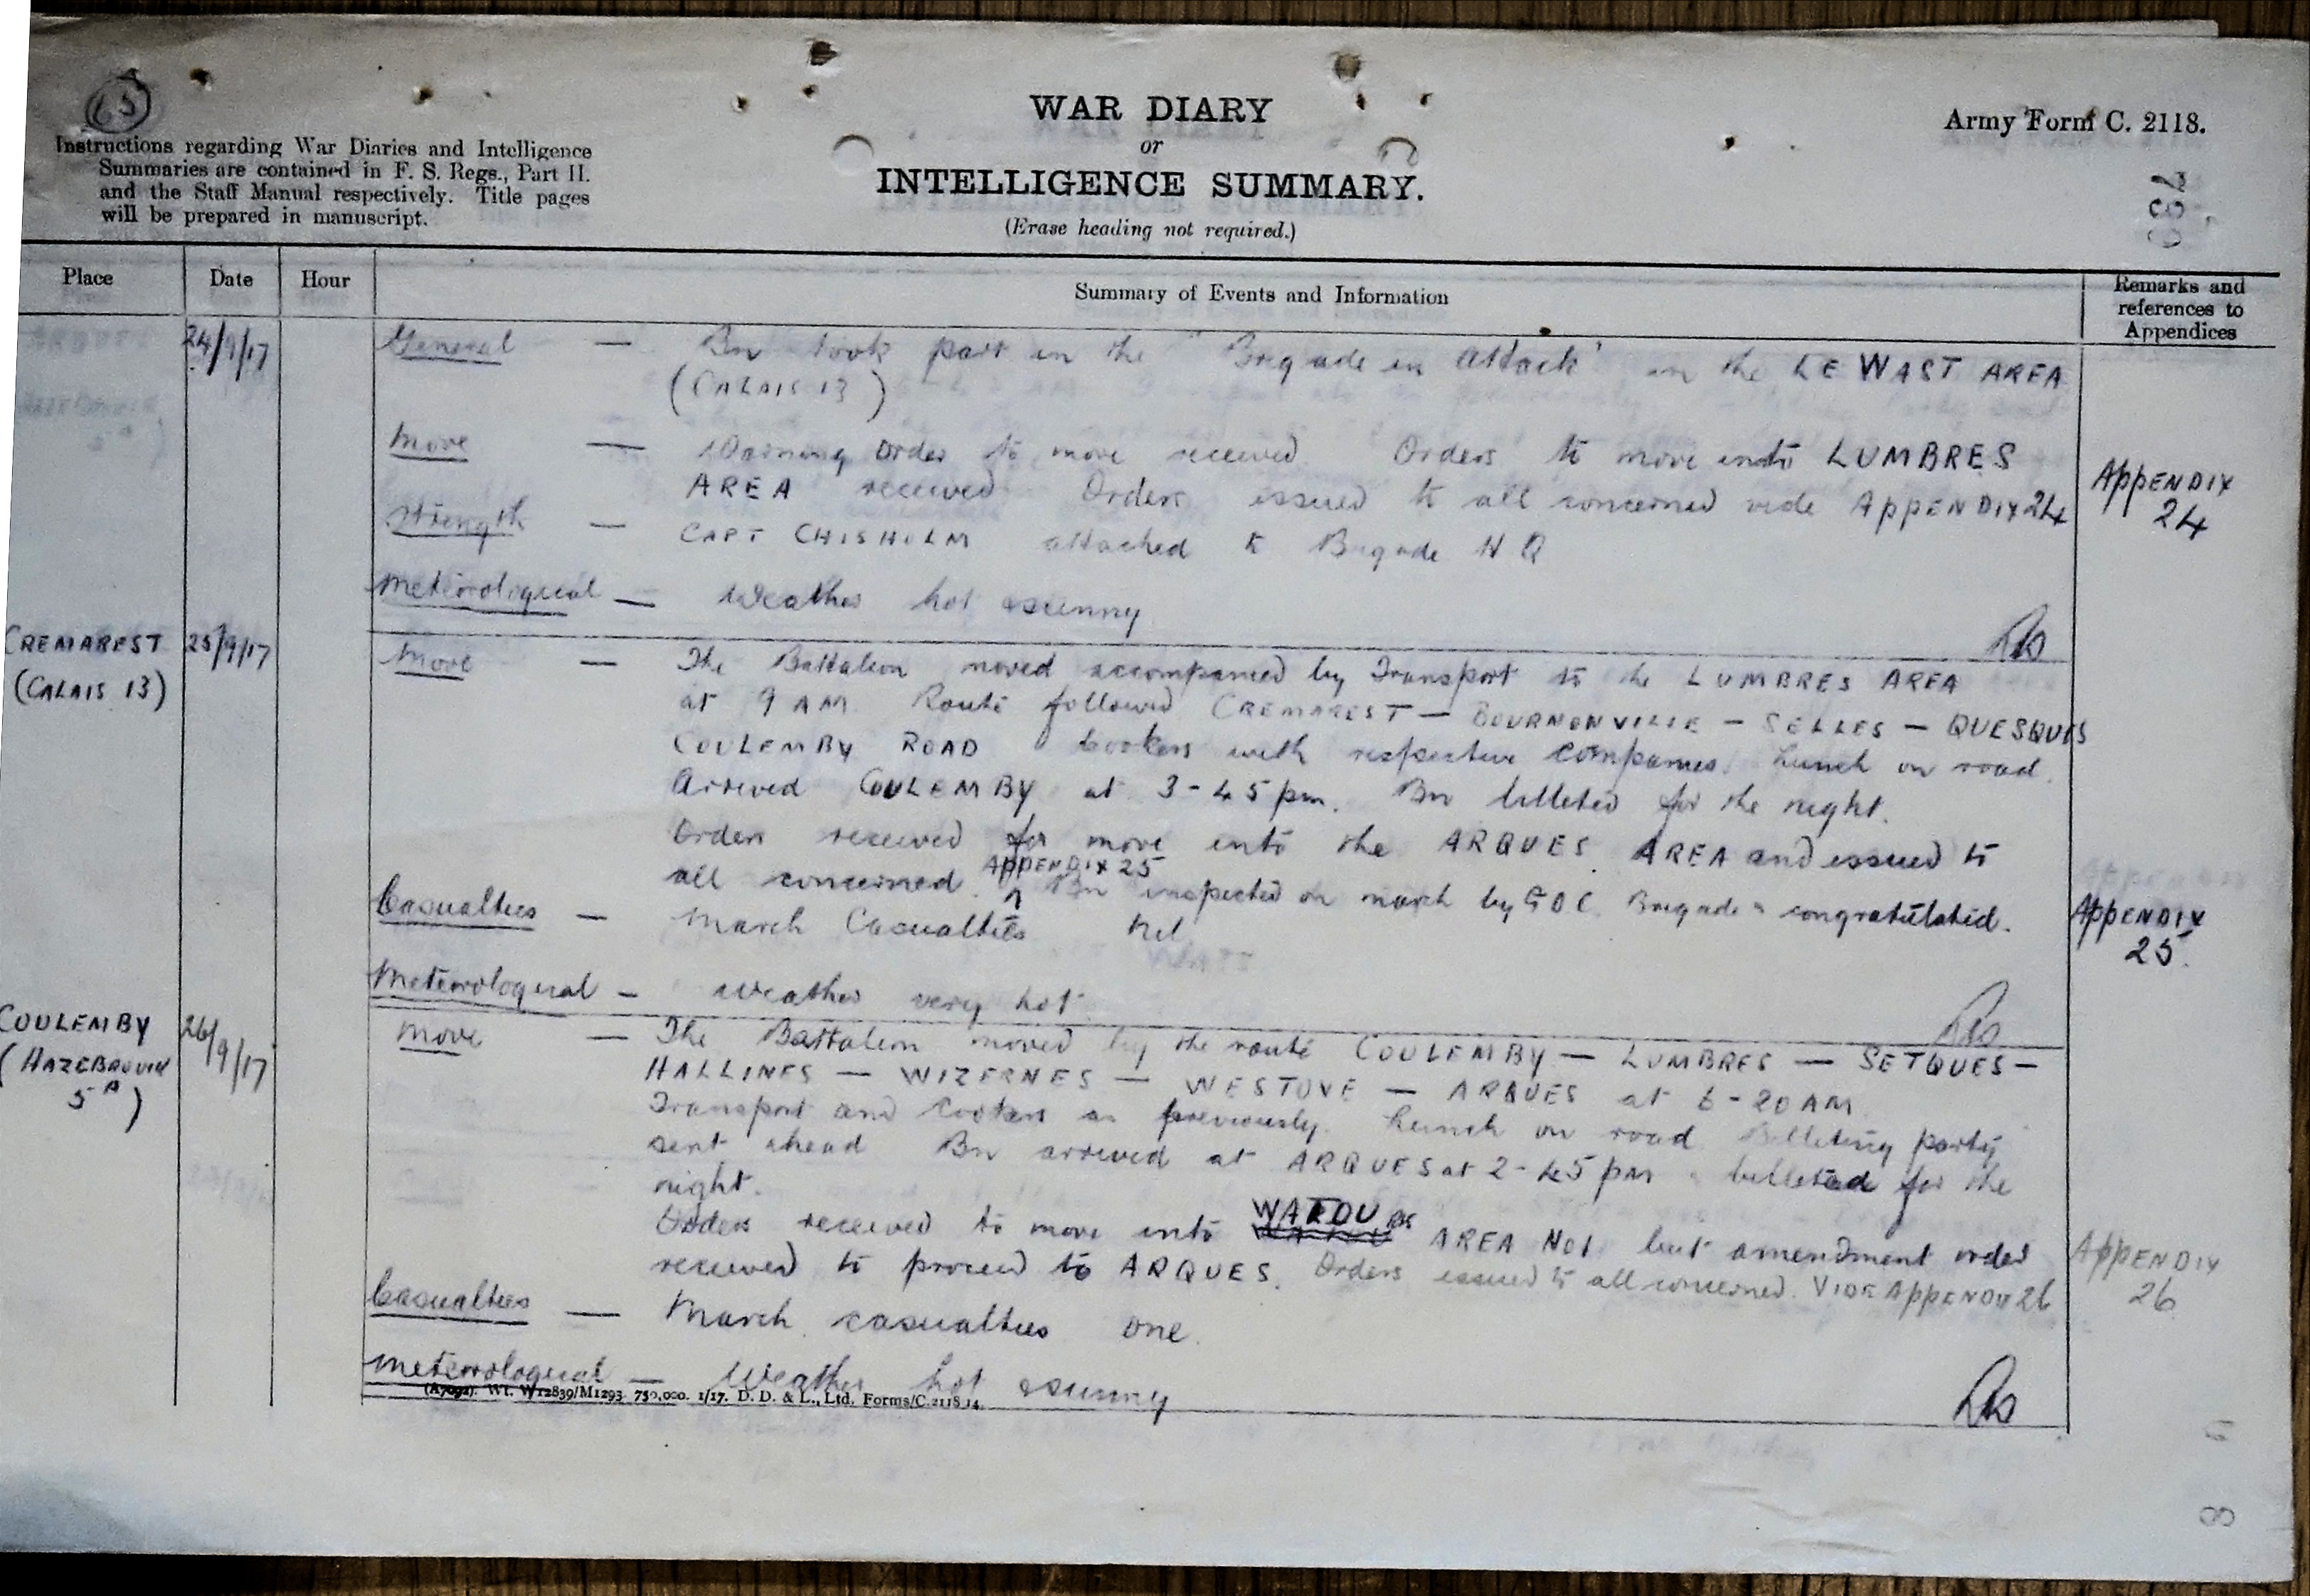 65
WAR DIARY
or
INTELLIGENCE SUMMARY.
(Erase heading not required.)
Army Form C. 2118.
Instructions regarding War Diaries and Intelligence
Summaries are contained in F. S. Regs., Part II.
and the Staff Manual respectively. Title pages
will be prepared in manuscript.
Place Date Hour Summary of Events and Information Remarks and references to Appendices
24/9/17 General — Bn took part in the "Brigade in attack" in the LE WAST AREA
(CALAIS 13)
Move — Warning Order to move received Orders to move into LUMBRES
AREA received Orders issued to all concerned vide APPENDIX 24 APPENDIX 24
Strength — CAPT CHISHOLM attached to Brigade H Q
Meteorological — Weather hot & sunny
CREMAREST 25/9/17 Move — The Battalion moved accompanied by Transport to the LUMBRES AREA
(CALAIS 13) at 9 AM. Route followed CREMAREST — BOURNONVILLE — SELLES — QUESQUES
COULEMBY ROAD Cookers with respective Companies. Lunch on road.
Arrived COULEMBY at 3-45 pm. Bn billeted for the night.
Orders received for move into the ARQUES AREA and issued to
all concerned. APPENDIX 25 Bn inspected on march by GOC Brigade & congratulated. APPENDIX 25.
Casualties — March Casualties Nil
Meteorological — Weather very hot
COULEMBY 26/9/17 Move — The Battalion moved by the route COULEMBY — LUMBRES — SETQUES —
(HAZEBROUCK HALLINES — WIZERNES — WESTOVE — ARQUES at 6-20 AM
5A) Transport and Cookers as previously. Lunch on road Billeting party
sent ahead Bn arrived at ARQUES at 2-45 pm & billeted for the
night.
Orders received to move into WATOU AREA No1 but amendment order
received to proceed to ARQUES. Orders issued to all concerned. VIDE APPENDIX 26 APPENDIX 26
Casualties — March casualties one.
Meteorological — Weather hot & sunny
(A7092). Wt. W12839/M1293. 750,000. 1/17. D. D. & L., Ltd. Forms/C.2118.14.